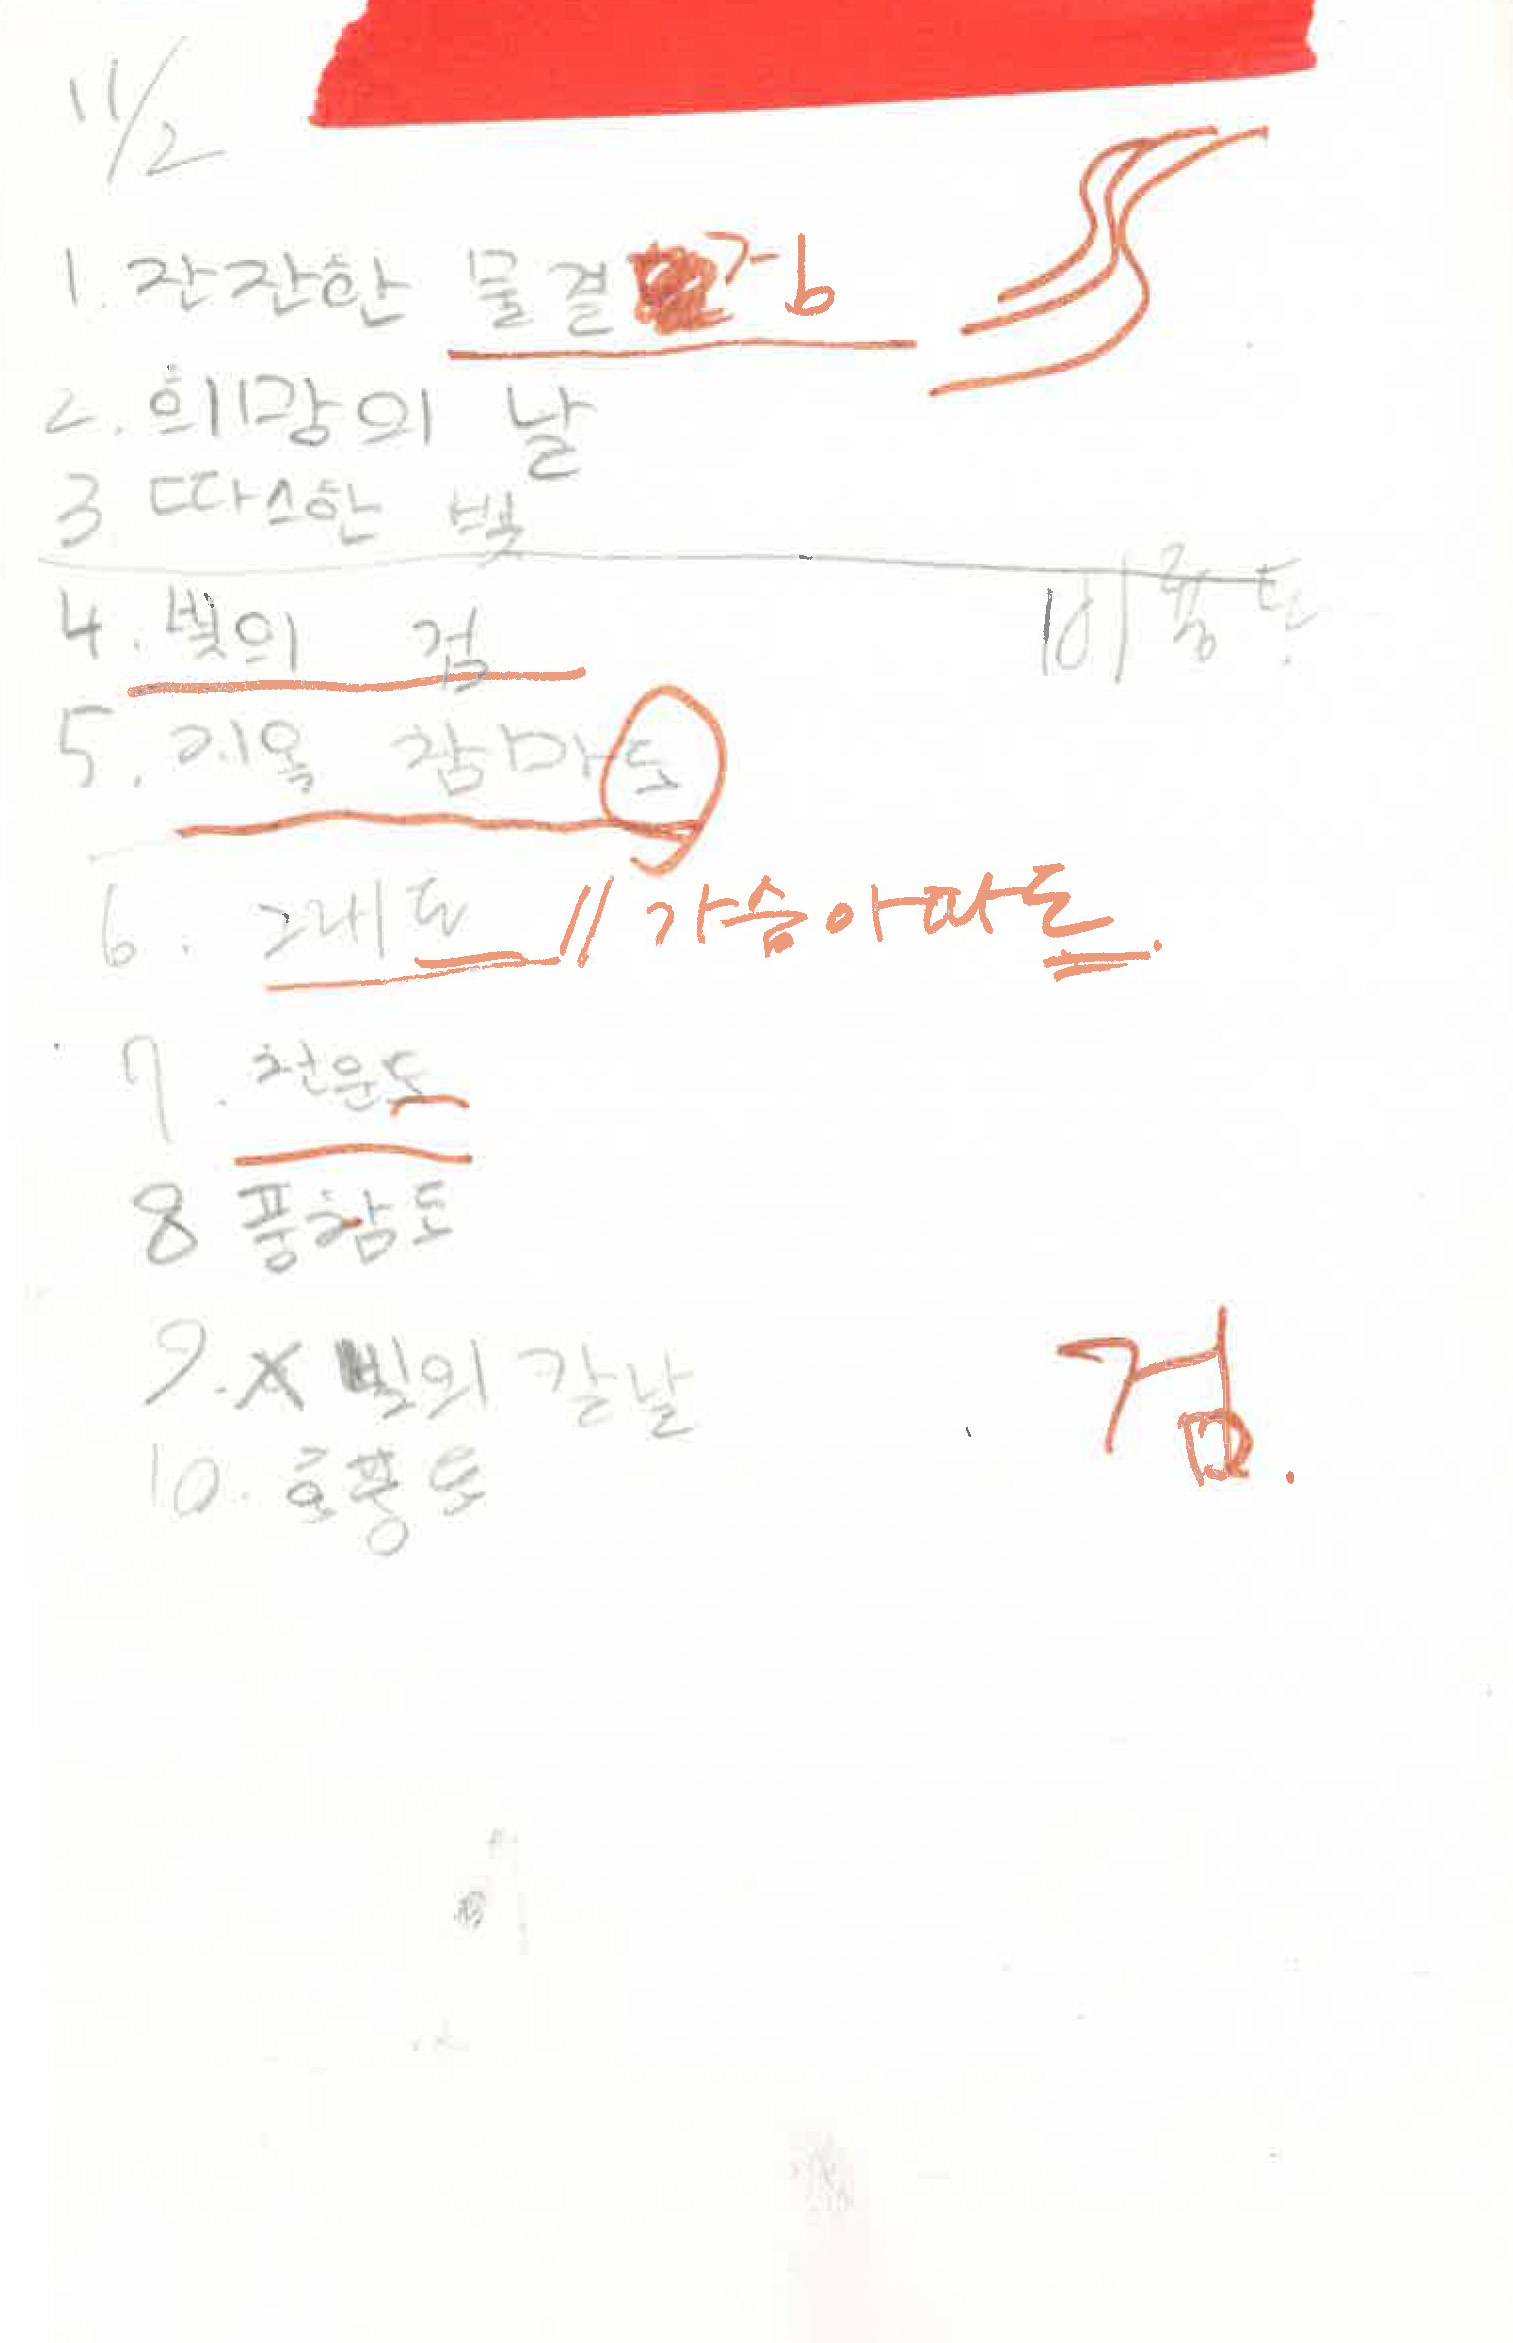 11/2
1. 잔잔한 물결 검
2. 희망의 날
3 따스한 빛
4. 빛의 검
5. 지옥 참마도
6. 그래도 // 가슴아파도.
7. 천운도
8 풍참도
9. 빛의 칼날
검.
10. 호풍도